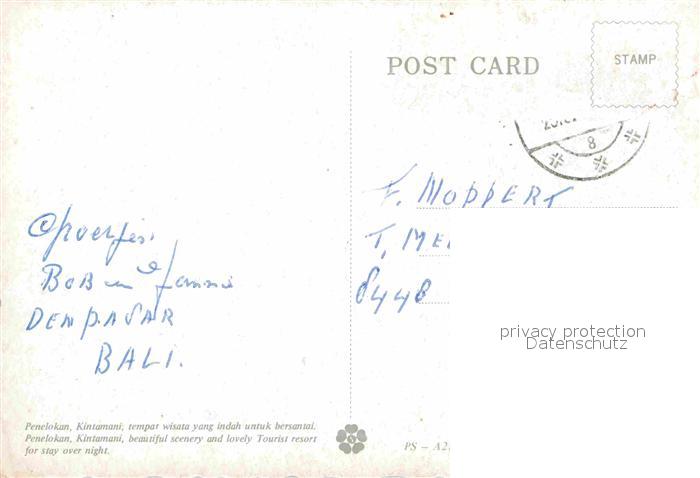 POST CARD
STAMP
8
F. MOPPERT
T. ME
8448
BOB en
DENPASAR
BALI.
privacy protection
Datenschutz
Penelokan, Kintamani, tempat wisata yang indah untuk bersantai.
Penelokan, Kintamani, beautiful scenery and lovely Tourist resort
for stay over night.
PS - A2